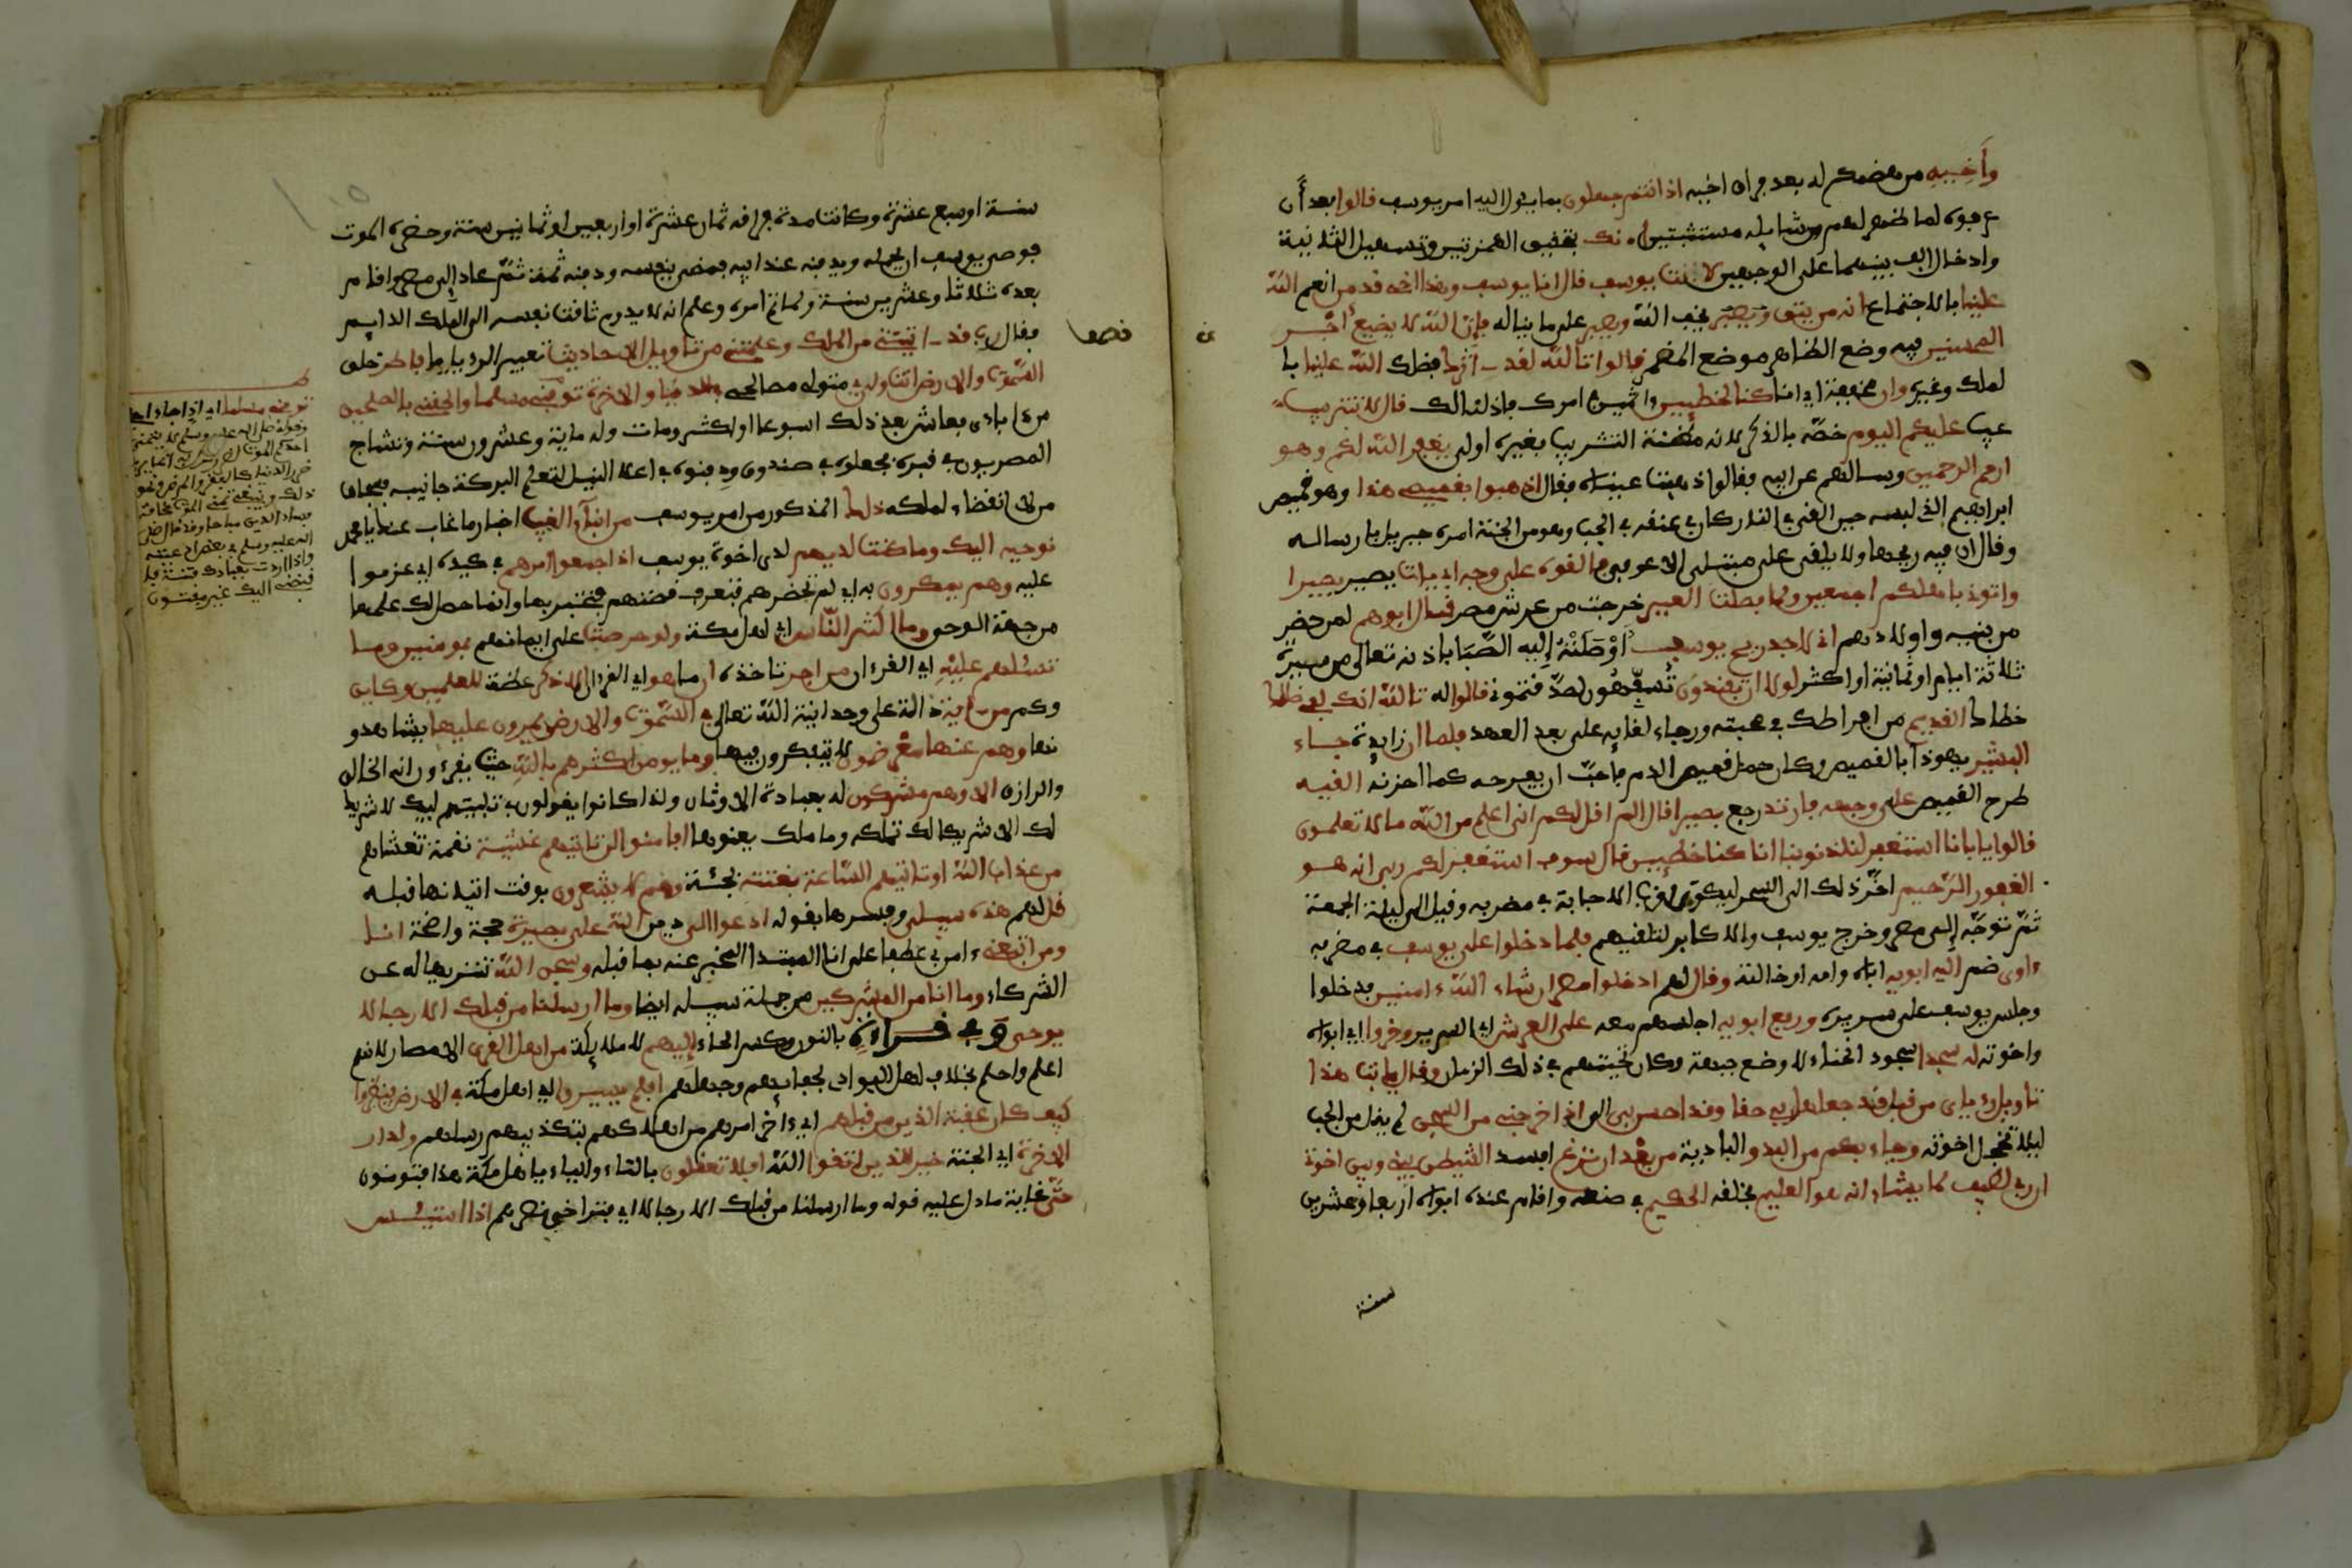 وأخيه من هضمكم له بعد فراق اخيه اذ انتم جهلون بما يئول اليه امر يوسف قالوا بعد أن
عرفوه لما ظهر لهم من شمايله مستثبتين أ.نك بتحقيق الهمزتين وتسهيل الثانية
وادخال الف بينهما على الوجهين لأنت يوسف قال انا يوسف وهذا اخى قد من انعم الله
علينا بالاجتماع انه من يتق ويصبر يخف الله ويصبر على ما يناله فإن الله لا يضيع أجر
المحسنين فيه وضع الظاهر موضع المضمر قالوا تالله لقد اثرك فضلك الله علينا با
لملك وغيره وان مخففة اي انا كنا لخطئين اثمين في امرك فاذلنا لك قال لا تثريب
عتب عليكم اليوم خصّه بالذكر لانه مظنة التثريب فغيره اولى يغفر الله لكم وهو
ارحم الرحمين وسالهم عن ابيه فقالوا ذهبت عيناه فقال اذهبوا بقميصي هذا وهو قميص
ابراهيم الذي لبسه حين القي في النار كان في عنقه في الجب وهو من الجنة امره جبريل بارساله
وقال ان فيه ريحها ولا يلقى على مبتلى الا عوفي فالقوه على وجه ابي يات يصير بصيرا
واتوني باهلكم اجمعين ولما فصلت العير خرجت من عريش مصر قال ابوهم لمن حضر
من بنيه واولادهم اني لاجد ريح يوسف أوصلته إليه الصَّبا باذنه تعالى من مسيرة
ثلاثة ايام او ثمانية او اكثر لولا ان تفندون تُسفِّهُون لصدّقتموني قالوا له تالله انك لفي ضللك
خطاك القديم من افراطك في محبته ورجاء لقايه على بعد العهد فلما ان زايدة جاء
البشير يهوذا بالقميص وكان حمل قميص الدم فاحبّ ان يفرحه كما احزنه القيه
طرح القميص على وجهه فارتد رجع بصيرا قال الم اقل لكم اني اعلم من الله ما لا تعلمون
قالوا يا بانا استغفر لنا ذنوبنا انا كنا خطئين قال سوف استغفر لكم ربي انه هو
الغفور الرّحيم اخّر ذلك الى السحر ليكون اقرب الى الاجابة في مضربه وقيل الى ليلة الجمعة
ثمّ توجّه إلى مصر وخرج يوسف والاكابر لتلقيهم فلما دخلوا على يوسف في مضربه
ءاوى ضم اليه ابويه اباه وامه او خالته وقال لهم ادخلوا مصر ان شاء الله ءامنين فدخلوا
وجلس يوسف على سريره ورفع ابويه اجلسهم معه على العرش اي السرير وخروا اي ابواه
واخوته له سجدا سجود انحناء لا وضع جبهة وكان تحيتهم في ذلك الزمان وقال يابت هذا
تاويل رءياي من قبل قد جعلها ربي حقا وقد احسن بي الي اذ اخرجني من السجن لم يقل من الجب
ليلا تخجل اخوته وجاء بكم من البدو البادية من بعد ان نزغ افسد الشيطن بيني وبين اخوتي
ان ربي لطيف لما يشاء انه هو العليم بخلقه الحكيم في صنعه واقام عنده ابوه اربعا وعشرين
سنة
سنة او سبع عشرة وكانت مدة فراقه ثمان عشرة او اربعين او ثمانين سنة وحضره الموت
فوصى يوسف ان يحمله ويدفنه عند ابيه فمضى بنفسه ودفنه ثمه ثمّ عاد إلى مصر واقام
بعده ثلاثا وعشرين سنة ولما تم امره وعلم انه لا يدوم تاقت نفسه الى الملك الدايم
فقال رب قد اتيتني من الملك وعلمتني من تاويل الاحاديث تعبير الرءيا يا فاطر خلق
السموت والارض انت ولي متولي مصالحي في الدنيا والاخرة توفني مسلما والحقني بالصلحين
من ءابادى فعاش بعد ذلك اسبوعا او اكثر ومات وله ماية وعشرون سنة وتشاح
المصريون في قبره فجعلوه في صندوق ودفنوه في اعلا النيل لتعم البركة جانبيه فسبحان
من لا انقضاء لملكه ذلك المذكور من امر يوسف من انباء الغيب اخبار ما غاب عنك يا محمد
نوحيه اليك وما كنت لديهم لدى اخوة يوسف اذ اجمعوا امرهم في كيده اي عزموا
عليه وهم يمكرون به اي لم تحضرهم فتعرف قصتهم فتخبر بها وانما حصل لك علمها
من جهة الوحي وما اكثر النّاس اي اهل مكة ولو حرصت على ايمانهم بمومنين وما
تسئلهم عليه اي القرءان من اجر تاخذه ان ما هو اي القرءان الا ذكر عظة للعلمين وكاين
وكم من ءاية دالة على وحدانية الله تعالى في السموت والارض يمرون عليها يشاهدو
نها وهم عنها معرضون لا يتفكرون فيها وما يومن اكثرهم بالله حيث يقرءون انه الخالق
والرازق الا وهم مشركون له بعبادة الاوثان ولذا كانوا يقولون في تلبيتهم لبيك لا شريك
لك الا شريكا لك تملكه وما ملك يعنونها افامنوا ان تاتيهم غشية نقمة تغشاهم
من عذاب الله او تاتيهم الساعة بغتة فجئة وهم لا يشعرون بوقت اتيانها قبله
قل لهم هذه سبيلي وفسرها بقوله ادعوا الى دين الله على بصيرة حجة واضحة انا
ومن اتبعني ءامن بي عطف على انا المبتدا المخبر عنه بما قبله وسبحن الله تنزيها له عن
الشركاء وما انا من المشركين من جملة سبيله ايضا وما ارسلنا من قبلك الا رجالا
يوحى وفي قراءة بالنون وكسر الحاء إليهم لا ملايكة من اهل القرى الامصار لانهم
اعلم واحلم بخلاف اهل البوادي لجفايهم وجهلهم افلم يسيروا اي اهل مكة في الارض فينظروا
كيف كان عقبة الذين من قبلهم اي ءاخر امرهم من اهلاكهم بتكذيبهم رسلهم ولدار
الاخرة اي الجنة خير للذين اتقوا الله افلا تعقلون بالتاء والياء يا اهل مكة هذا فتومنون
حتّى غاية ما دل عليه قوله وما ارسلنا من قبلك الا رجالا اي فتراخى نصرهم اذا استيئس
توفني مسلما اي اذا جاء اجلي
وقوله صلى الله عليه وسلم لا يتمنين
احدكم الموت
ضرر الدنيا كالفقر والمرض ونحو
ذلك وينبغي تمني الموت مخافة
فساد الدين
الله عليه وسلم في بعض ادعيته
واذا اردت بعبادك فتنة
فاقبضني اليك غير مفتون